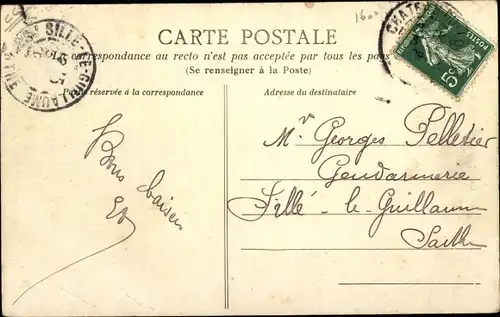 SILLÉ-LE-GUILLAUME
1600
CHATE
5c
CARTE POSTALE
La correspondance au recto n'est pas acceptée par tous les pays
(Se renseigner à la Poste)
Partie réservée à la correspondance
Adresse du destinataire
Bons baisers
Mr Georges Pelletier
Gendarmerie
Sillé-le-Guillaume
Sarthe